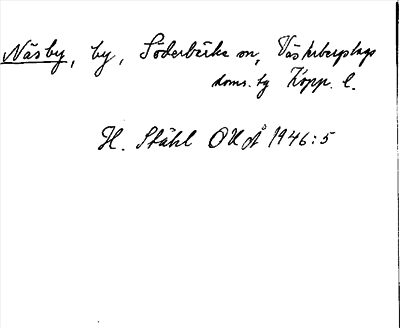 Näsby, by, Söderbärke sn, Västerbergslags
doms. tg Kopp. l.
H. Ståhl OUÅ 1946:5